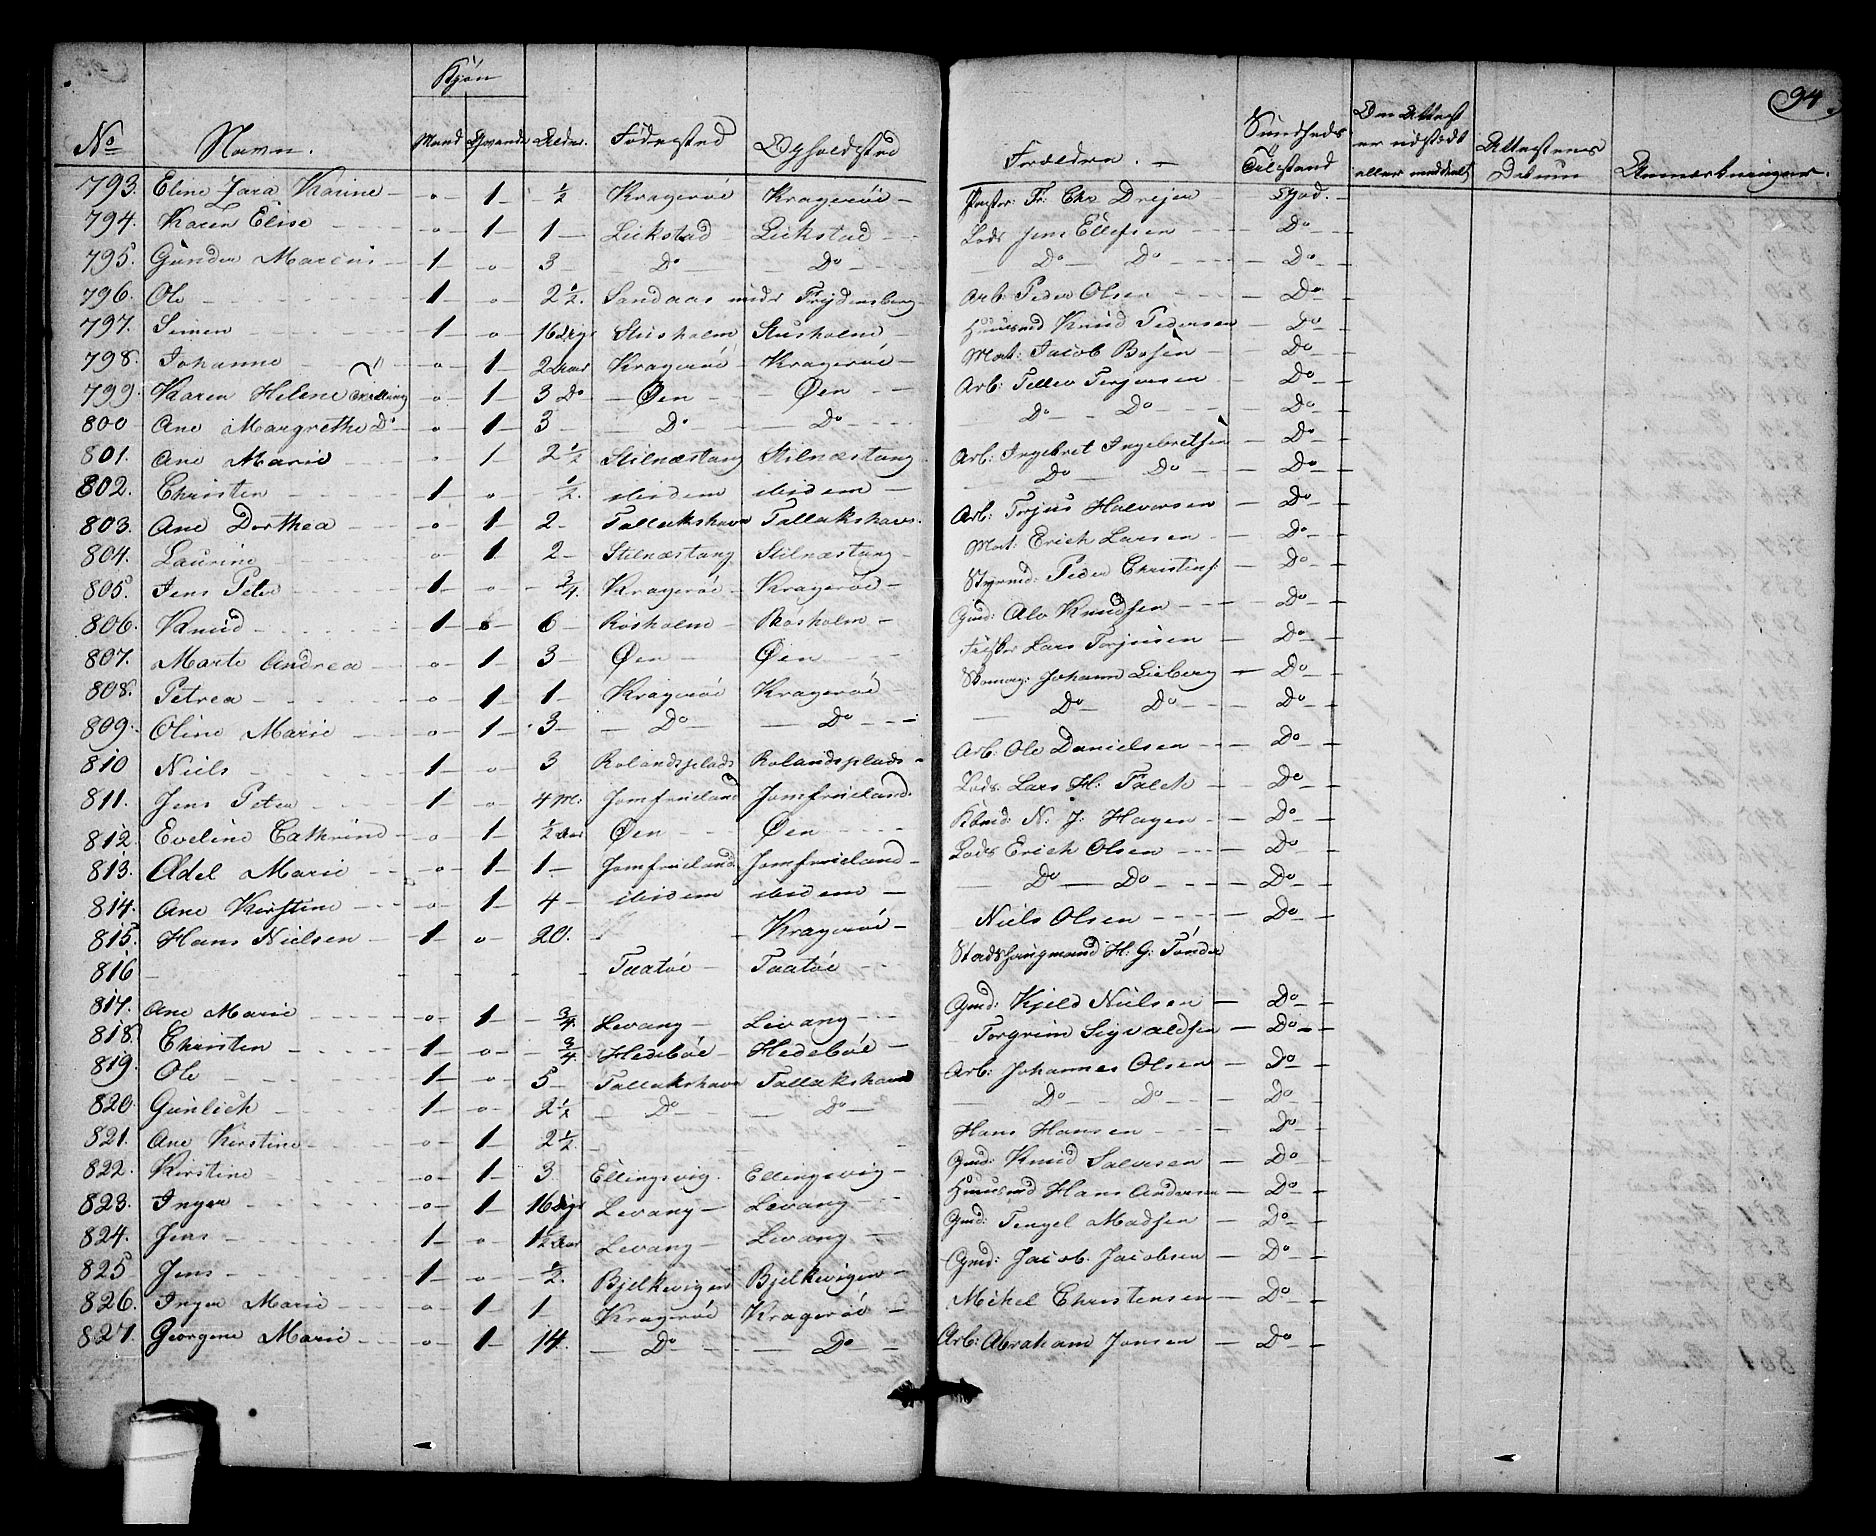 94
Kjön
No Navn. Mand Qvinde Alder. Födested Opholdsted Forældre. Sundheds Tilstand Om Attest er udstædt eller meddelt Attestens Datum Anmærkninger.
793. Eline Zara Karine - o - 1 - ½ Kragerøe Kragerøe - Fr: Chr Drejer God.
794. Karen Elise - o - 1 - 1 - Leikstad Leikstad Lods Jens Ellefsen Do
795. Gunder Marcus - 1 - o - 3 - Do Do Do Do Do
796. Ole 1 - o - 2½. Sandaas Frydensberg Arb: Peder Olsen Do
797. Simen 1 o 16 Dge Stusholm Stusholm Huusmd Knud Pedersen Do
798. Johanne o - 1 - 2 Aar Kragerøe Kragerøe - Mat: Jacob Do
799. Karen Helene Tvilling o - 1 - 3 Do Øen Øen Arb: Tellev Terjersen Do
800 Ane Margrethe Do o - 1 - 3 - Do Do Do Do Do
801. Ane Marie o - 1 - 2½ Stilnæstang Stilnæstang Arb: Ingebret Ingebretsen Do
802. Christen 1 - o - ½. ibidem ibidem - Do Do Do
803. Ane Dorthea o - 1 - 2 - Tallakshavn Tallakshavn Arb: Torjus Halvorsen Do
804. Laurine o 1 2 - Stilnæstang Stilnæstang Mat: Erich Larsen Do
805. Jens Peter 1 - o - ¾. Kragerøe Kragerøe - Styrmd: Peder Christens: Do
806. Knud 1 - o - 6 - Rösholm Rösholm - Gmd: Alv Knudsen Do
807. Marte Andrea o - 1 - 3 - Øen Øen Fisker Lars Torjusen Do
808. Petrea o - 1 - 1 - Kragerøe Kragerøe Skomag: Johann Lieberg Do
809. Oline Marie o - 1 - 3 - Do Do Do Do Do
810 Niels 1 - o - 3 Rolandsplads Rolandsplads - Arb: Ole Danielsen Do
811. Jens Peter 1 - o - 4 M: Jomfrueland Jomfrueland. Lods Lars H: Falch Do
812. Eveline Cathrine o - 1 - ½ Aar Øen Øen Kibmd N. J: Hagen Do
813. Adel Marie o - 1 - 1 - Jomfrueland. Jomfrueland - Lods Erich Olsen Do
814. Ane Kirstine o - 1 - 4 - ibidem ibidem - Do Do Do
815. Hans Nielsen 1 - o - 20. Kragerøe - Niels Olsen Do
816 Taatøe - Taatøe Stadshauptmand H: G: Tönder
817. Ane Marie o - 1 - ¾ Levang - Levang Gmd: Kjeld Nielsen - Do
818. Christen 1 - o - ¾ Hedebøe Hedebøe Torgrim Sigvaldsen - Do
819. Ole 1 - o - 5 - Tallakshavn Tallakshavn Arb: Johannes Olsen - Do
820. Gunlich 1 - o - 2½ Do Do Do Do Do
821. Ane Kirstine o - 1 - 2½. Hans Hansen Do
822. Kirstine o - 1 - 3 Ellingsvig. Ellingsvig - Gmd: Knud Salvesen - Do
823. Inger o - 1 - 16 Dge Levang - Levang Huusmd Hans Andersen - Do
824. Jens 1 - o - 1½ Aar Levang - Levang - Gmd: Tengel Madsen - Do
825 Jens 1 - o - ½. Bjelkevigen Bjelkevigen - Gmd: Jacob. Jacobsen - Do
826. Inger Marie o - 1 - 1 - Kragerøe Kragerøe Mikel Christensen - Do
827. Georgene Marie o - 1 - 14. Do Do Arb: Abraham Jonsen - Do